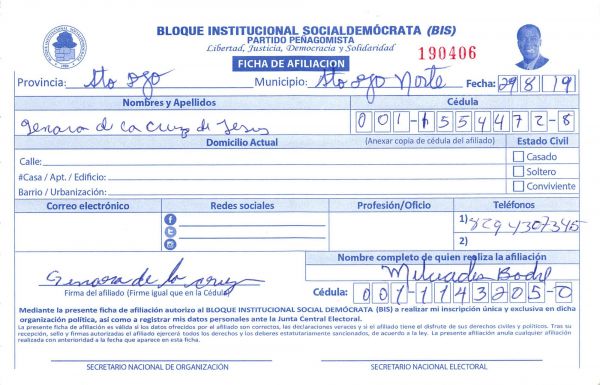 BLOQUE INSTITUCIONAL SOCIALDEMÓCRATA (BIS)
PARTIDO PEÑAGOMISTA
Libertad, Justicia, Democracia y Solidaridad
FICHA DE AFILIACION
190406
Provincia: Sto Dgo Municipio: Sto Dgo Norte Fecha: 29 8 19
Nombres y Apellidos Cédula
Genara de la Cruz de Jesus 001-1554472-8
Domicilio Actual (Anexar copia de cédula del afiliado) Estado Civil
Calle: Casado
#Casa / Apt. / Edificio: Soltero
Barrio / Urbanización: Conviviente
Correo electrónico Redes sociales Profesión/Oficio Teléfonos
1) 829 4307345
2)
Nombre completo de quien realiza la afiliación
Genara de la Cruz Milciades
Firma del afiliado (Firme igual que en la Cédula) Cédula: 001-1143205-0
Mediante la presente ficha de afiliación autorizo al BLOQUE INSTITUCIONAL SOCIAL DEMÓCRATA (BIS) a realizar mi inscripción única y exclusiva en dicha
organización política, así como a registrar mis datos personales ante la Junta Central Electoral.
La presente ficha de afiliación es válida si los datos ofrecidos por el afiliado son correctos, las declaraciones veraces y si el afiliado tiene el disfrute de sus derechos civiles y políticos. Tras su
recepción, sello y firmas autorizadas el afiliado ejercerá todos los derechos y los deberes estatutariamente sancionados, de acuerdo a la ley. La presente afiliación anula cualquier afiliación
realizada con anterioridad a la fecha que aparece en esta ficha.
SECRETARIO NACIONAL DE ORGANIZACIÓN SECRETARIO NACIONAL ELECTORAL